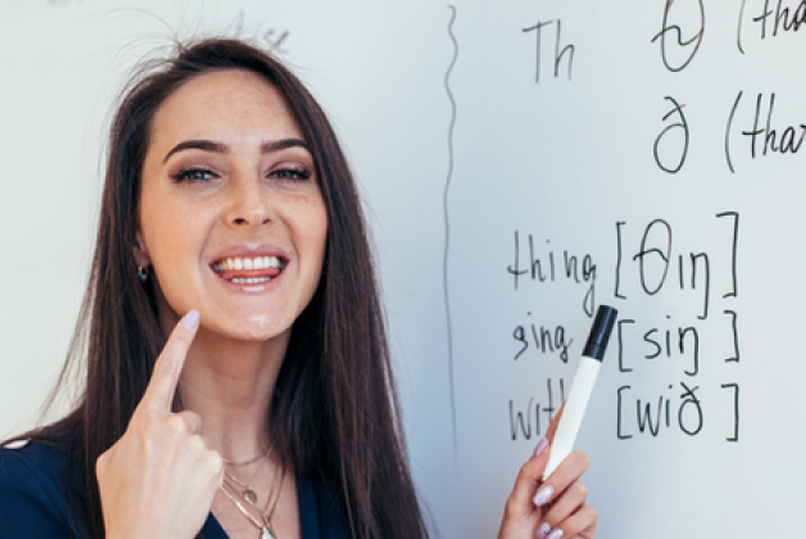 Th θ (tha
ð (tha
thing [θıŋ]
sing [siŋ]
with [wið]